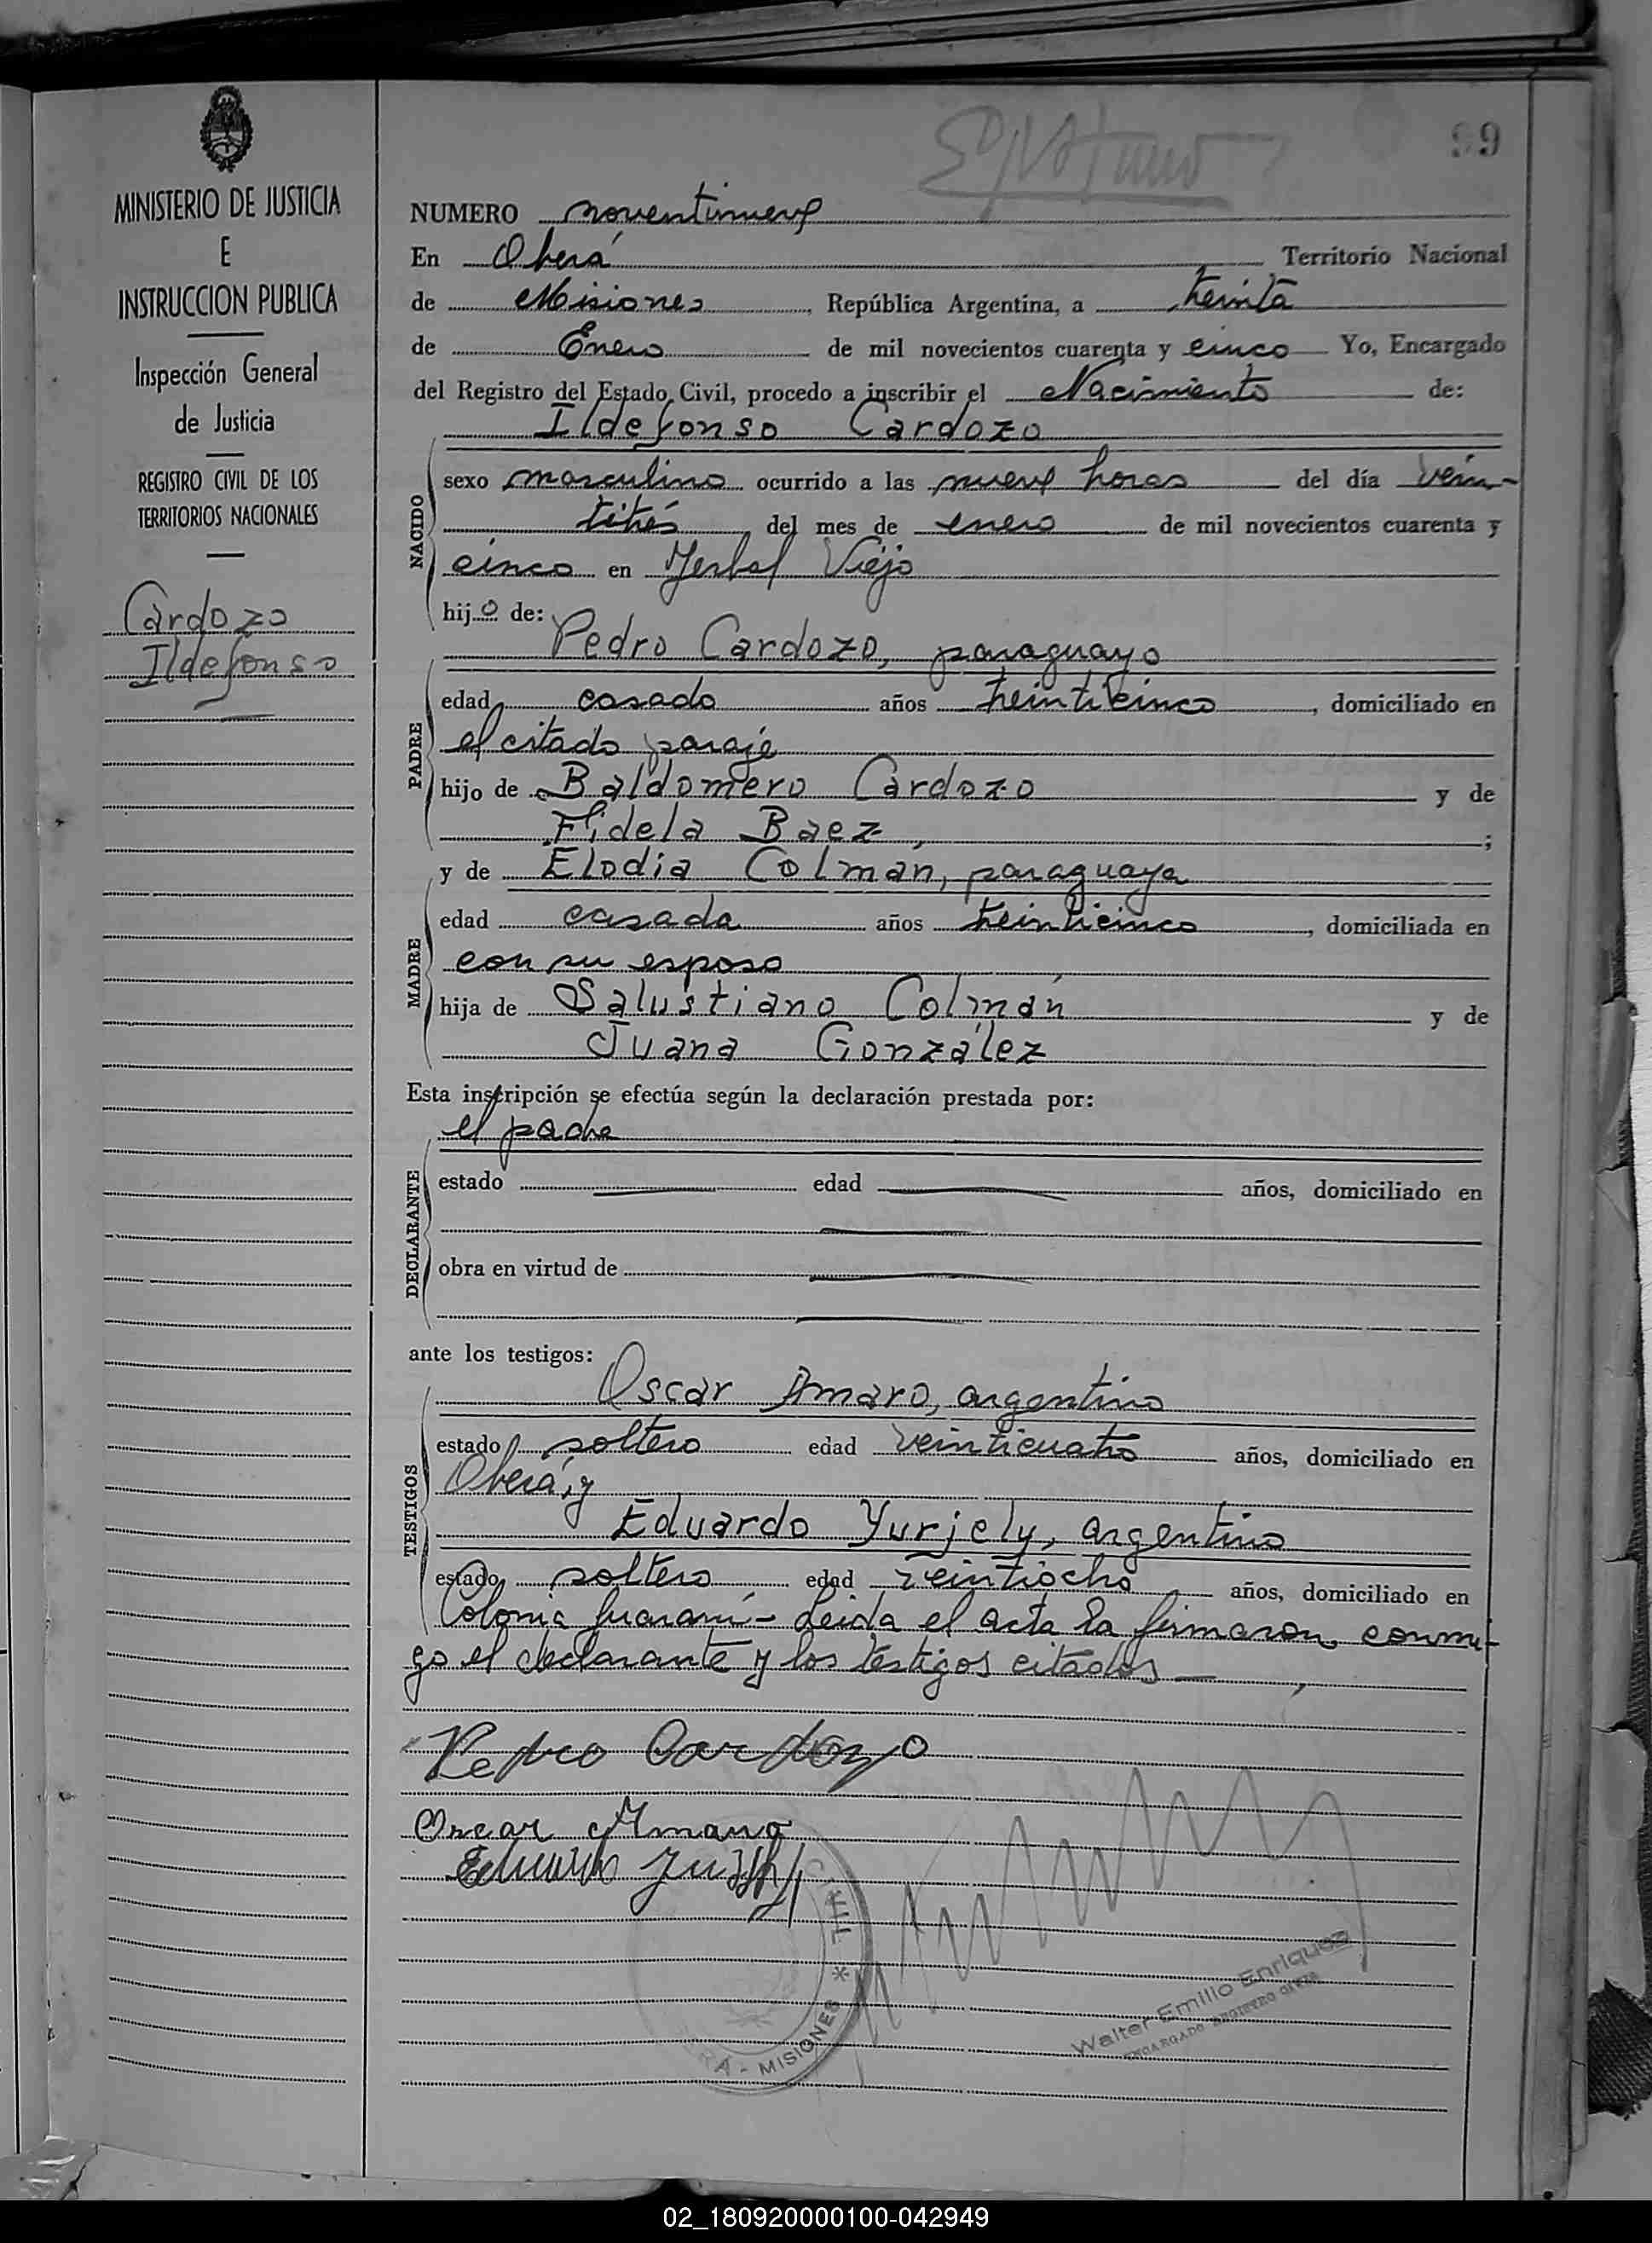 99
MINISTERIO DE JUSTICIA
E
INSTRUCCION PUBLICA
Inspección General
de Justicia
REGISTRO CIVIL DE LOS
TERRITORIOS NACIONALES
Cardozo
Ildefonso
NUMERO noventinueve
En Oberá Territorio Nacional
de Misiones, República Argentina, a treinta
de Enero de mil novecientos cuarenta y cinco Yo, Encargado
del Registro del Estado Civil, procedo a inscribir el Nacimiento de:
Ildefonso Cardozo
NACIDO
sexo masculino ocurrido a las nueve horas del día vein-
titrés del mes de enero de mil novecientos cuarenta y
cinco en Yerbal Viejo
hijo de:
Pedro Cardozo, paraguayo
PADRE
edad casado años treinticinco, domiciliado en
el citado paraje
hijo de Baldomero Cardozo y de
Fidela Baez ;
y de Elodia Colmán, paraguaya
MADRE
edad casada años treinticinco, domiciliada en
con su esposo
hija de Salustiano Colmán y de
Juana González
Esta inscripción se efectúa según la declaración prestada por:
el padre
DECLARANTE
estado edad años, domiciliado en
obra en virtud de
ante los testigos:
Oscar Amaro, argentino
TESTIGOS
estado soltero edad veinticuatro años, domiciliado en
Oberá, y
Eduardo Yurjely, argentino
estado soltero edad veintiocho años, domiciliado en
Colonia Guaraní - Leida el acta la firmaron conmi-
go el declarante y los testigos citados
Pedro Cardozo
Oscar Amaro
Eduardo
RA - MISIONES * TRE
Walter Emilio Enriquez
ENCARGADO REGISTRO CIVIL
02_180920000100-042949